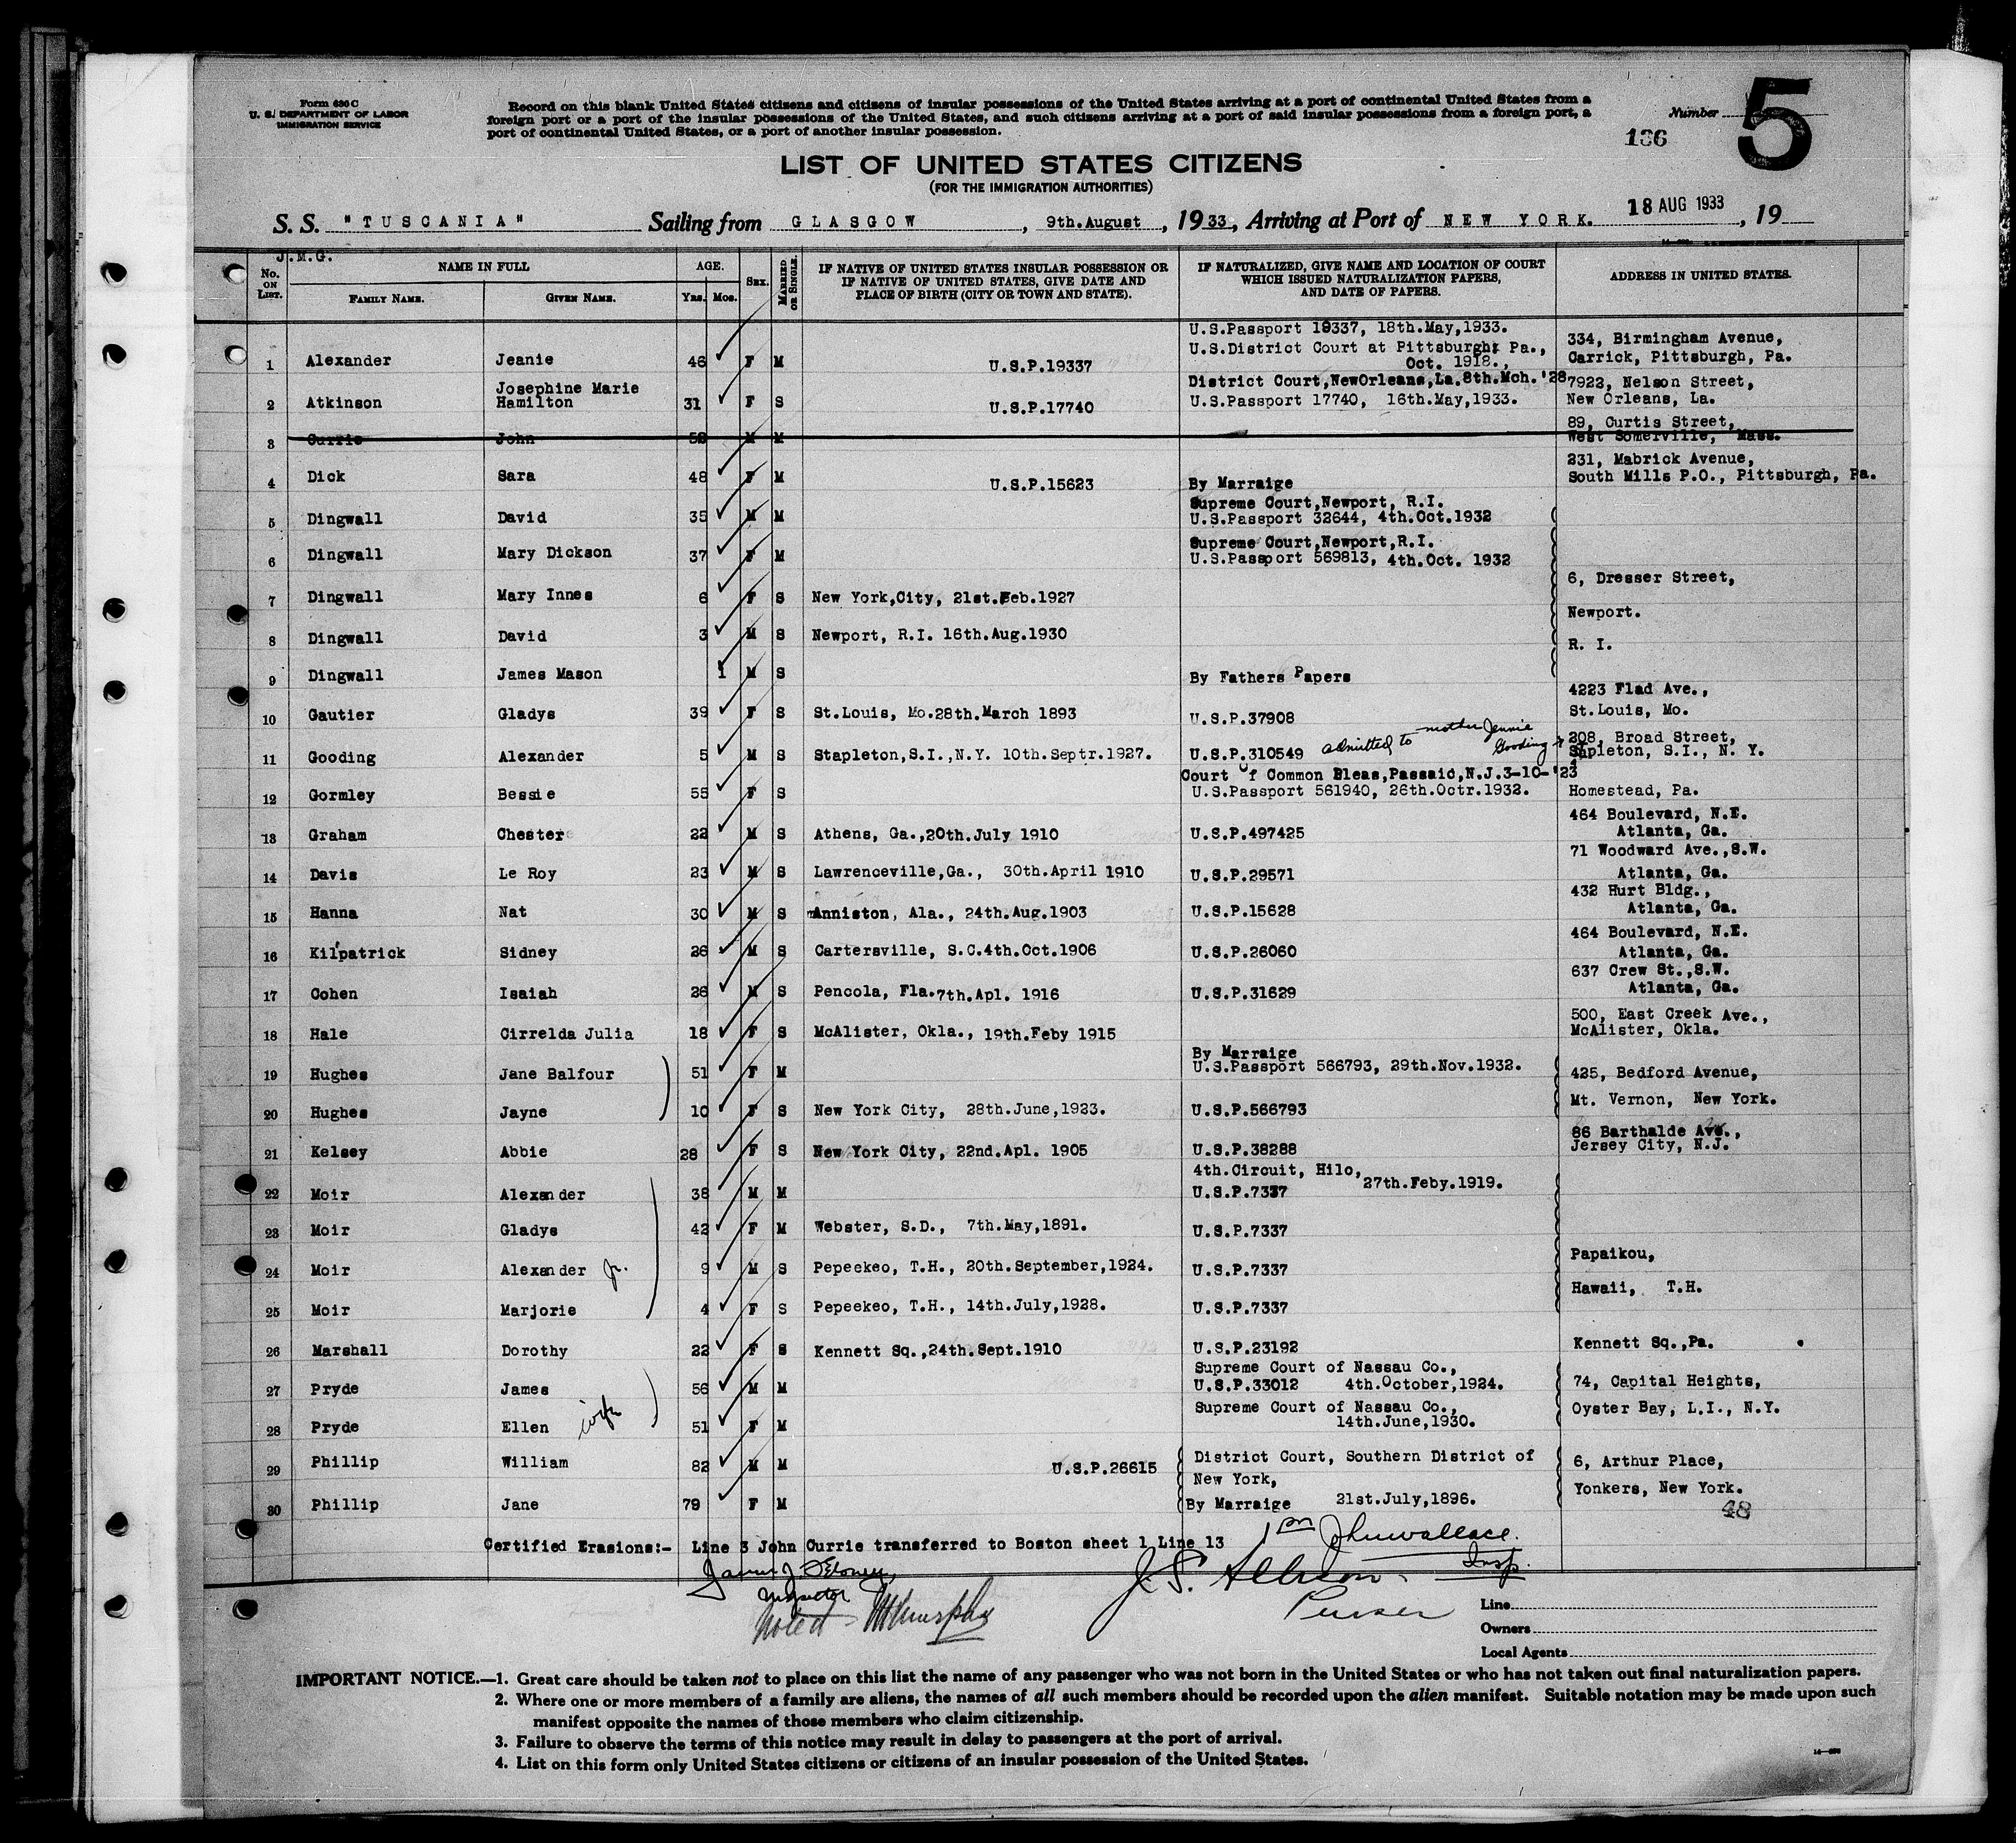 Form 630 C
U. S. DEPARTMENT OF LABOR
IMMIGRATION SERVICE
Record on this blank United States citizens and citizens of insular possessions of the United States arriving at a port of continental United States from a
foreign port or a port of the insular possessions of the United States, and such citizens arriving at a port of said insular possessions from a foreign port, a
port of continental United States, or a port of another insular possession.
Number 5
136
LIST OF UNITED STATES CITIZENS
(FOR THE IMMIGRATION AUTHORITIES)
S. S. "TUSCANIA" Sailing from GLASGOW, 9th.August, 1933, Arriving at Port of NEW YORK. 18 AUG 1933, 19
J.M.G.
No. ON LIST. NAME IN FULL AGE. SEX. MARRIED OR SINGLE. IF NATIVE OF UNITED STATES INSULAR POSSESSION OR IF NATIVE OF UNITED STATES, GIVE DATE AND PLACE OF BIRTH (CITY OR TOWN AND STATE). IF NATURALIZED, GIVE NAME AND LOCATION OF COURT WHICH ISSUED NATURALIZATION PAPERS, AND DATE OF PAPERS. ADDRESS IN UNITED STATES.
FAMILY NAME. GIVEN NAME. YRS. MOS.
1 Alexander Jeanie 46 F M U.S.P.19337 U.S.Passport 19337, 18th.May,1933. U.S.District Court at Pittsburgh, Pa., Oct. 1918., 334, Birmingham Avenue, Carrick, Pittsburgh, Pa.
2 Atkinson Josephine Marie Hamilton 31 F S U.S.P.17740 District Court,NewOrleans,La.8th.Mch.'28 U.S.Passport 17740, 16th.May,1933. 7922, Nelson Street, New Orleans, La.
3 Currie John 52 M M 89, Curtis Street, West Somerville, Mass.
4 Dick Sara 48 F M U.S.P.15623 By Marraige 231, Mabrick Avenue, South Mills P.O., Pittsburgh, Pa.
5 Dingwall David 35 M M Supreme Court,Newport, R.I. U.S.Passport 32644, 4th.Oct.1932
6 Dingwall Mary Dickson 37 F M Supreme Court,Newport,R.I. U.S.Passport 569813, 4th.Oct. 1932
7 Dingwall Mary Innes 6 F S New York,City, 21st.Feb.1927 6, Dresser Street,
Newport.
8 Dingwall David 3 M S Newport, R.I. 16th.Aug.1930 R. I.
9 Dingwall James Mason 1 M S By Fathers Papers
10 Gautier Gladys 39 F S St.Louis, Mo.28th.March 1893 U.S.P.37908 4223 Flad Ave., St.Louis, Mo.
11 Gooding Alexander 5 M S Stapleton,S.I.,N.Y. 10th.Septr.1927. U.S.P.310549 admitted to mother Jennie Gooding 208, Broad Street, Stapleton, S.I., N. Y.
12 Gormley Bessie 55 F S Court of Common Pleas,Passaic,N.J.3-10-'23 U.S.Passport 561940, 26th.Octr.1932. Homestead, Pa.
13 Graham Chester 22 M S Athens, Ga.,20th.July 1910 U.S.P.497425 464 Boulevard, N.E. Atlanta, Ga.
14 Davis Le Roy 23 M S Lawrenceville,Ga., 30th.April 1910 U.S.P.29571 71 Woodward Ave.,S.W. Atlanta, Ga.
15 Hanna Nat 30 M S Anniston, Ala., 24th.Aug.1903 U.S.P.15628 432 Hurt Bldg., Atlanta, Ga.
16 Kilpatrick Sidney 26 M S Cartersville, S.C.4th.Oct.1906 U.S.P.26060 464 Boulevard, N.E. Atlanta, Ga.
17 Cohen Isaiah 26 M S Pencola, Fla.7th.Apl. 1916 U.S.P.31629 637 Crew St.,S.W. Atlanta, Ga.
18 Hale Cirrelda Julia 18 F S McAlister, Okla., 19th.Feby 1915 500, East Creek Ave., McAlister, Okla.
19 Hughes Jane Balfour 51 F M By Marraige U.S.Passport 566793, 29th.Nov.1932. 425, Bedford Avenue,
20 Hughes Jayne 10 F S New York City, 28th.June,1923. U.S.P.566793 Mt. Vernon, New York.
21 Kelsey Abbie 28 F S New York City, 22nd.Apl. 1905 U.S.P.38288 86 Barthalde Ave., Jersey City, N.J.
22 Moir Alexander 38 M M 4th.Circuit, Hilo, 27th.Feby.1919. U.S.P.7337
23 Moir Gladys 42 F M Webster, S.D., 7th.May,1891. U.S.P.7337
24 Moir Alexander Jr. 9 M S Pepeekeo, T.H., 20th.September,1924. U.S.P.7337 Papaikou,
Hawaii, T.H.
25 Moir Marjorie 4 F S Pepeekeo, T.H., 14th.July,1928. U.S.P.7337
26 Marshall Dorothy 22 F S Kennett Sq.,24th.Sept.1910 U.S.P.23192 Kennett Sq.,Pa.
27 Pryde James 56 M M Supreme Court of Nassau Co., U.S.P.33012 4th.October,1924. 74, Capital Heights,
28 Pryde Ellen wife 51 F M Supreme Court of Nassau Co., 14th.June,1930. Oyster Bay, L.I., N.Y.
29 Phillip William 82 M M U.S.P.26615 District Court, Southern District of New York, 6, Arthur Place,
30 Phillip Jane 79 F M By Marraige 21st.July,1896. Yonkers, New York.
48
Certified Erasions:- Line 3 John Currie transferred to Boston sheet 1 Line 13
Johnwallace. Insp.
Inspector
J. S. Allison. Purser
Noted
Line
Owners
Local Agents
IMPORTANT NOTICE.—1. Great care should be taken not to place on this list the name of any passenger who was not born in the United States or who has not taken out final naturalization papers.
2. Where one or more members of a family are aliens, the names of all such members should be recorded upon the alien manifest. Suitable notation may be made upon such
manifest opposite the names of those members who claim citizenship.
3. Failure to observe the terms of this notice may result in delay to passengers at the port of arrival.
4. List on this form only United States citizens or citizens of an insular possession of the United States.